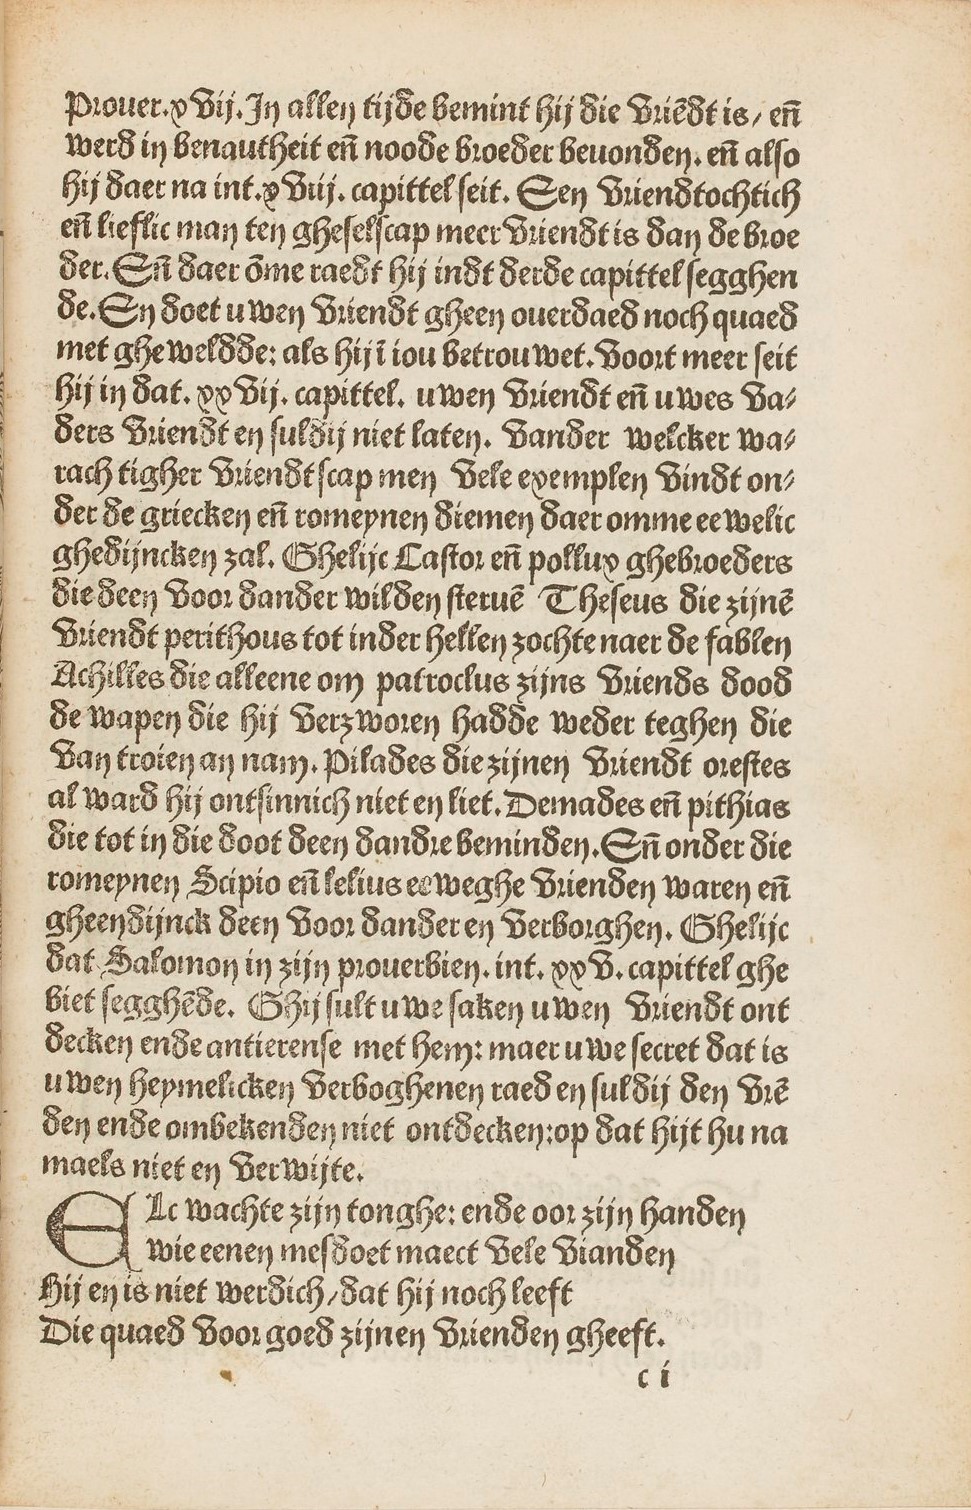 Prouer.xvij.In allen tijde bemint hij die vriēdt is/ en̄
werd in benautheit en̄ noode broeder beuonden. en̄ also
hij daer na int.xviij. capittel seit. Een vriendtochtich
en̄ lieflic man ten gheselscap meer vriendt is dan de broe
der. En̄ daer ōme raedt hij indt derde capittel segghen
de. En doet uwen vriendt gheen ouerdaed noch quaed
met gheweldde: als hij ī iou betrouwet. voort meer seit
hij in dat. xxvij. capittel. uwen vriendt en̄ uwes va⸗
ders vriendt en suldij niet laten. vander welcker wa⸗
rachtigher vriendtscap men vele exemplen vindt on⸗
der de griecken en̄ romeynen diemen daer omme eewelic
ghedijncken zal. Ghelijc Castor en̄ pollux ghebroeders
die deen voor dander wilden steruē Theseus die zijnē
vriendt perithous tot inder hellen zochte naer de fablen
Achilles die alleene om patroclus zijns vriends dood
de wapen die hij verzworen hadde weder teghen die
van troien an nam. Pilades die zijnen vriendt orestes
al ward hij ontsinnich niet en liet. Demades en̄ pithias
die tot in die doot deen dandre beminden. En̄ onder die
romeynen Scipio en̄ lelius eeweghe vrienden waren en̄
gheendijnck deen voor dander en verborghen. Ghelijc
dat Salomon in zijn prouerbien. int. xxv. capittel ghe
biet segghēde. Ghij sult uwe saken uwen vriendt ont
decken ende antierense met hem: maer uwe secret dat is
uwen heymelicken verboghenen raed en suldij den vrē
den ende ombekenden niet ontdecken:op dat hijt hu na
maels niet en verwijte.
ELc wachte zijn tonghe: ende oor zijn handen
wie eenen mesdoet maect vele vianden
Hij en is niet werdich/dat hij noch leeft
Die quaed voor goed zijnen vrienden gheeft.
c i